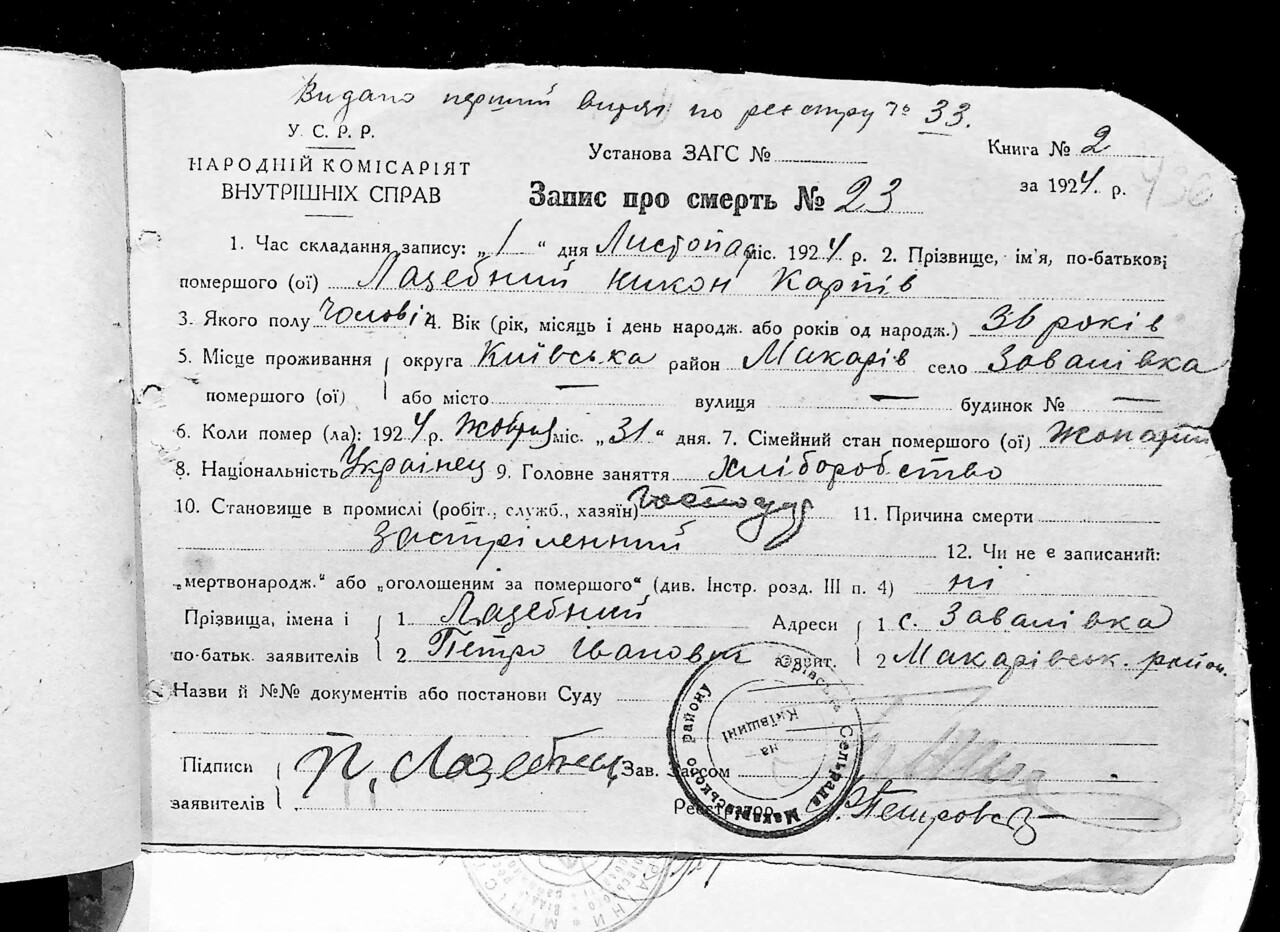 Видано перший витяг по реєстру № 33.
У. С. Р. Р.
НАРОДНІЙ КОМІСАРІЯТ
ВНУТРІШНІХ СПРАВ
Установа ЗАГС №
Книга № 2
за 1924 р.
Запис про смерть № 23
1. Час складання запису: „1“ дня Листопад міс. 1924 р. 2. Прізвище, ім'я, по-батькові
помершого (ої) Лазебний Никон Карпів
3. Якого полу Чоловік 4. Вік (рік, місяць і день народж. або років од народж.) 36 років
5. Місце проживання округа Київська район Макарів село Завалівка
помершого (ої) або місто — вулиця — будинок № —
6. Коли помер (ла): 1924 р. Жовтня міс. „31“ дня. 7. Сімейний стан помершого (ої) Жонатий
8. Національність Українец 9. Головне заняття хліборобство
10. Становище в промислі (робіт., служб., хазяїн) Господар 11. Причина смерти
застріленний 12. Чи не є записаний:
„мертвонародж.“ або „оголошеним за помершого“ (див. Інстр. розд. III п. 4) ні
Прізвища, імена і 1 Лазебний Адреси 1 с. Завалівка
по-батьк. заявителів 2 Петро Іванович заявит. 2 Макарівськ. район.
Назви й №№ документів або постанови Суду
Підписи П. Лазебнец Зав. Загсом
заявителів Реєстратор Петровс
Сельрада Макарівського району
на Київщині